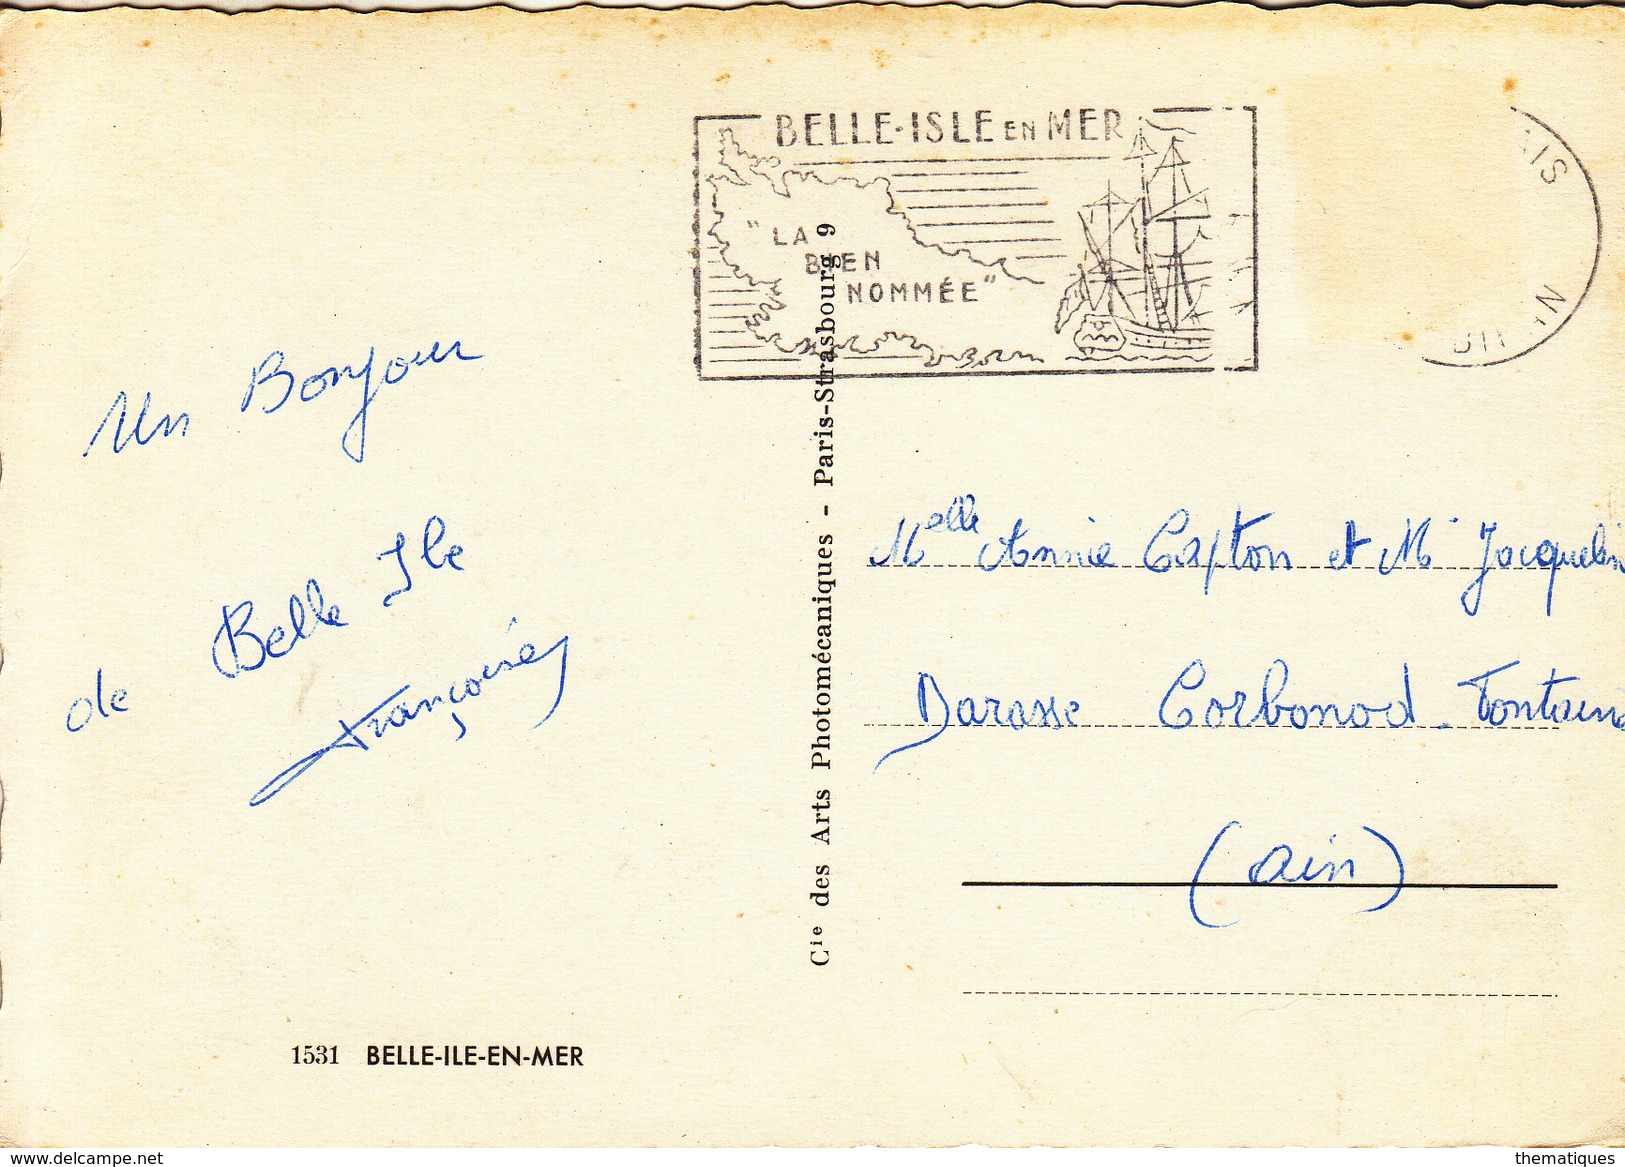 BELLE-ISLE EN MER
"LA
BIEN
NOMMÉE"
Un Bonjour
de Belle Ile
Françoise
Melle Annie Capton et M Jacquelin
Darasse Corbonod - Fontaine
(Ain)
Cie des Arts Photomécaniques - Paris-Strasbourg 9
1531 BELLE-ILE-EN-MER
www.delcampe.net
thematiques